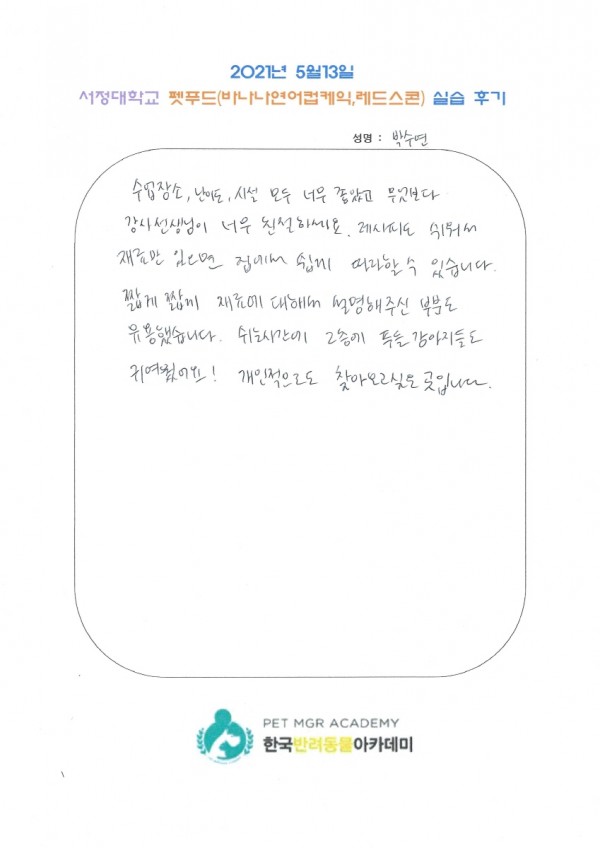 2021년 5월13일
서정대학교 펫푸드(바나나연어컵케익,레드스콘) 실습 후기
성명 : 박수연
수업장소, 난이도, 시설 모두 너무 좋았고 무엇보다
강사선생님이 너무 친절하세요. 레시피도 쉬워서
재료만 있으면 집에서 쉽게 따라할 수 있습니다.
짧게 짧게 재료에 대해서 설명해주신 부분도
유용했습니다. 쉬는시간에 2층에 푸들 강아지들도
귀여웠어요! 개인적으로도 찾아오고싶은 곳입니다.
PET MGR ACADEMY
한국반려동물아카데미